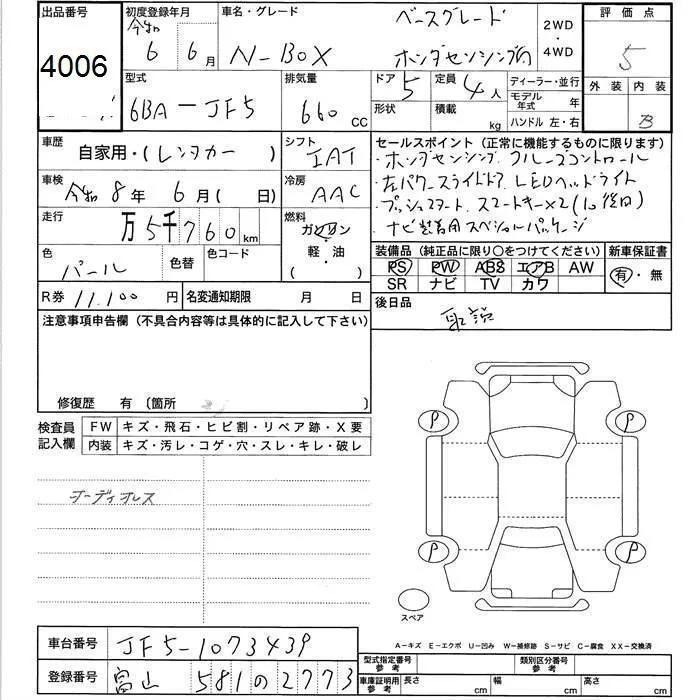 出品番号
4006
初度登録年月
令和 6 6月
車名・グレード
N-BOX
ベースグレード
ホンダセンシング付
2WD
・
4WD
評価点
5
外装 内装
B
型式
6BA-JF5
排気量
660 CC
ドア 5
定員 4人
形状
積載 kg
ディーラー・並行
モデル年式 年
ハンドル 左・右
車歴
自家用・(レンタカー)
シフト
IAT
車検
令和8年 6月( 日)
冷房
AAC
走行
万5千760km
燃料
ガソリン
・
軽・油
( )
色
パール
色替
色コード
R券 11,100円
名変通知期限 月 日
セールスポイント(正常に機能するものに限ります)
・ホンダセンシング クルーズコントロール
・左パワースライドドア LEDヘッドライト
・プッシュスタート スマートキー×2(1つ後日)
ナビ装着用スペシャルパッケージ
装備品(純正品に限り○をつけてください)
PS PW ABS エアB AW
SR ナビ TV カワ
新車保証書
有・無
後日品
取説
注意事項申告欄(不具合内容等は具体的に記入して下さい)
修復歴 有〔箇所 〕
検査員記入欄
FW キズ・飛石・ヒビ割・リペア跡・X要
内装 キズ・汚レ・コゲ・穴・スレ・キレ・破レ
オーディオレス
P
P
P
P
スペア
A-キズ E-エクボ U-凹み W-補修跡 S-サビ C-腐食 XX-交換済
車台番号 JF5-1073439
登録番号 富山 581の2773
型式指定番号 参考
類別区分番号 参考
車庫証明用 参考
長さ cm
幅 cm
高さ cm